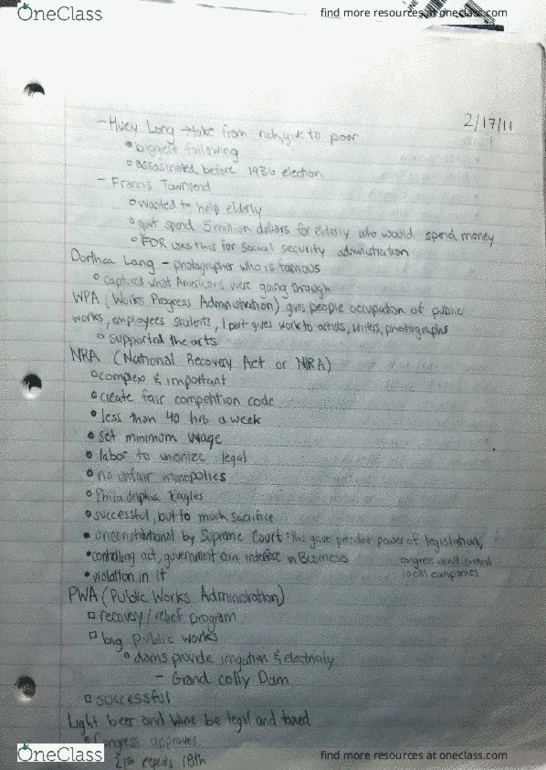 OneClass
find more resources at oneclass.com
2/17/11
- Huey Long → take from rich, give to poor
biggest following
assasinated before 1936 election
- Francis Townsend
wanted to help elderly
govt spend 5 million dollars for elderly who would spend money
FDR uses this for social security administration
Dorthea Lang - photographer who is famous
captured what Americans were going through
WPA (Works Progress Administration) gives people occupation of public
works, employees students, 1 part gives work to artists, writers, photographs
supported the arts
NRA (National Recovery Act or NIRA)
complex & important
create fair competition code
less than 40 hrs a week
set minimum wage
labor to unionize legal
no unfair monopolies
Philadelphia Eagles
successful, but to much sacrifice
unconstitutional by Supreme Court: this gave president power of legislation,
controlling act, government can interfere in Business
congress control
local companies
violation in it
PWA (Public Works Administration)
recovery/relief program
big public works
dams provide irrigation & electricity
- Grand colly Dam
successful
Light beer and wine be legal and taxed
Congress approves
21st repeals 18th
OneClass
find more resources at oneclass.com